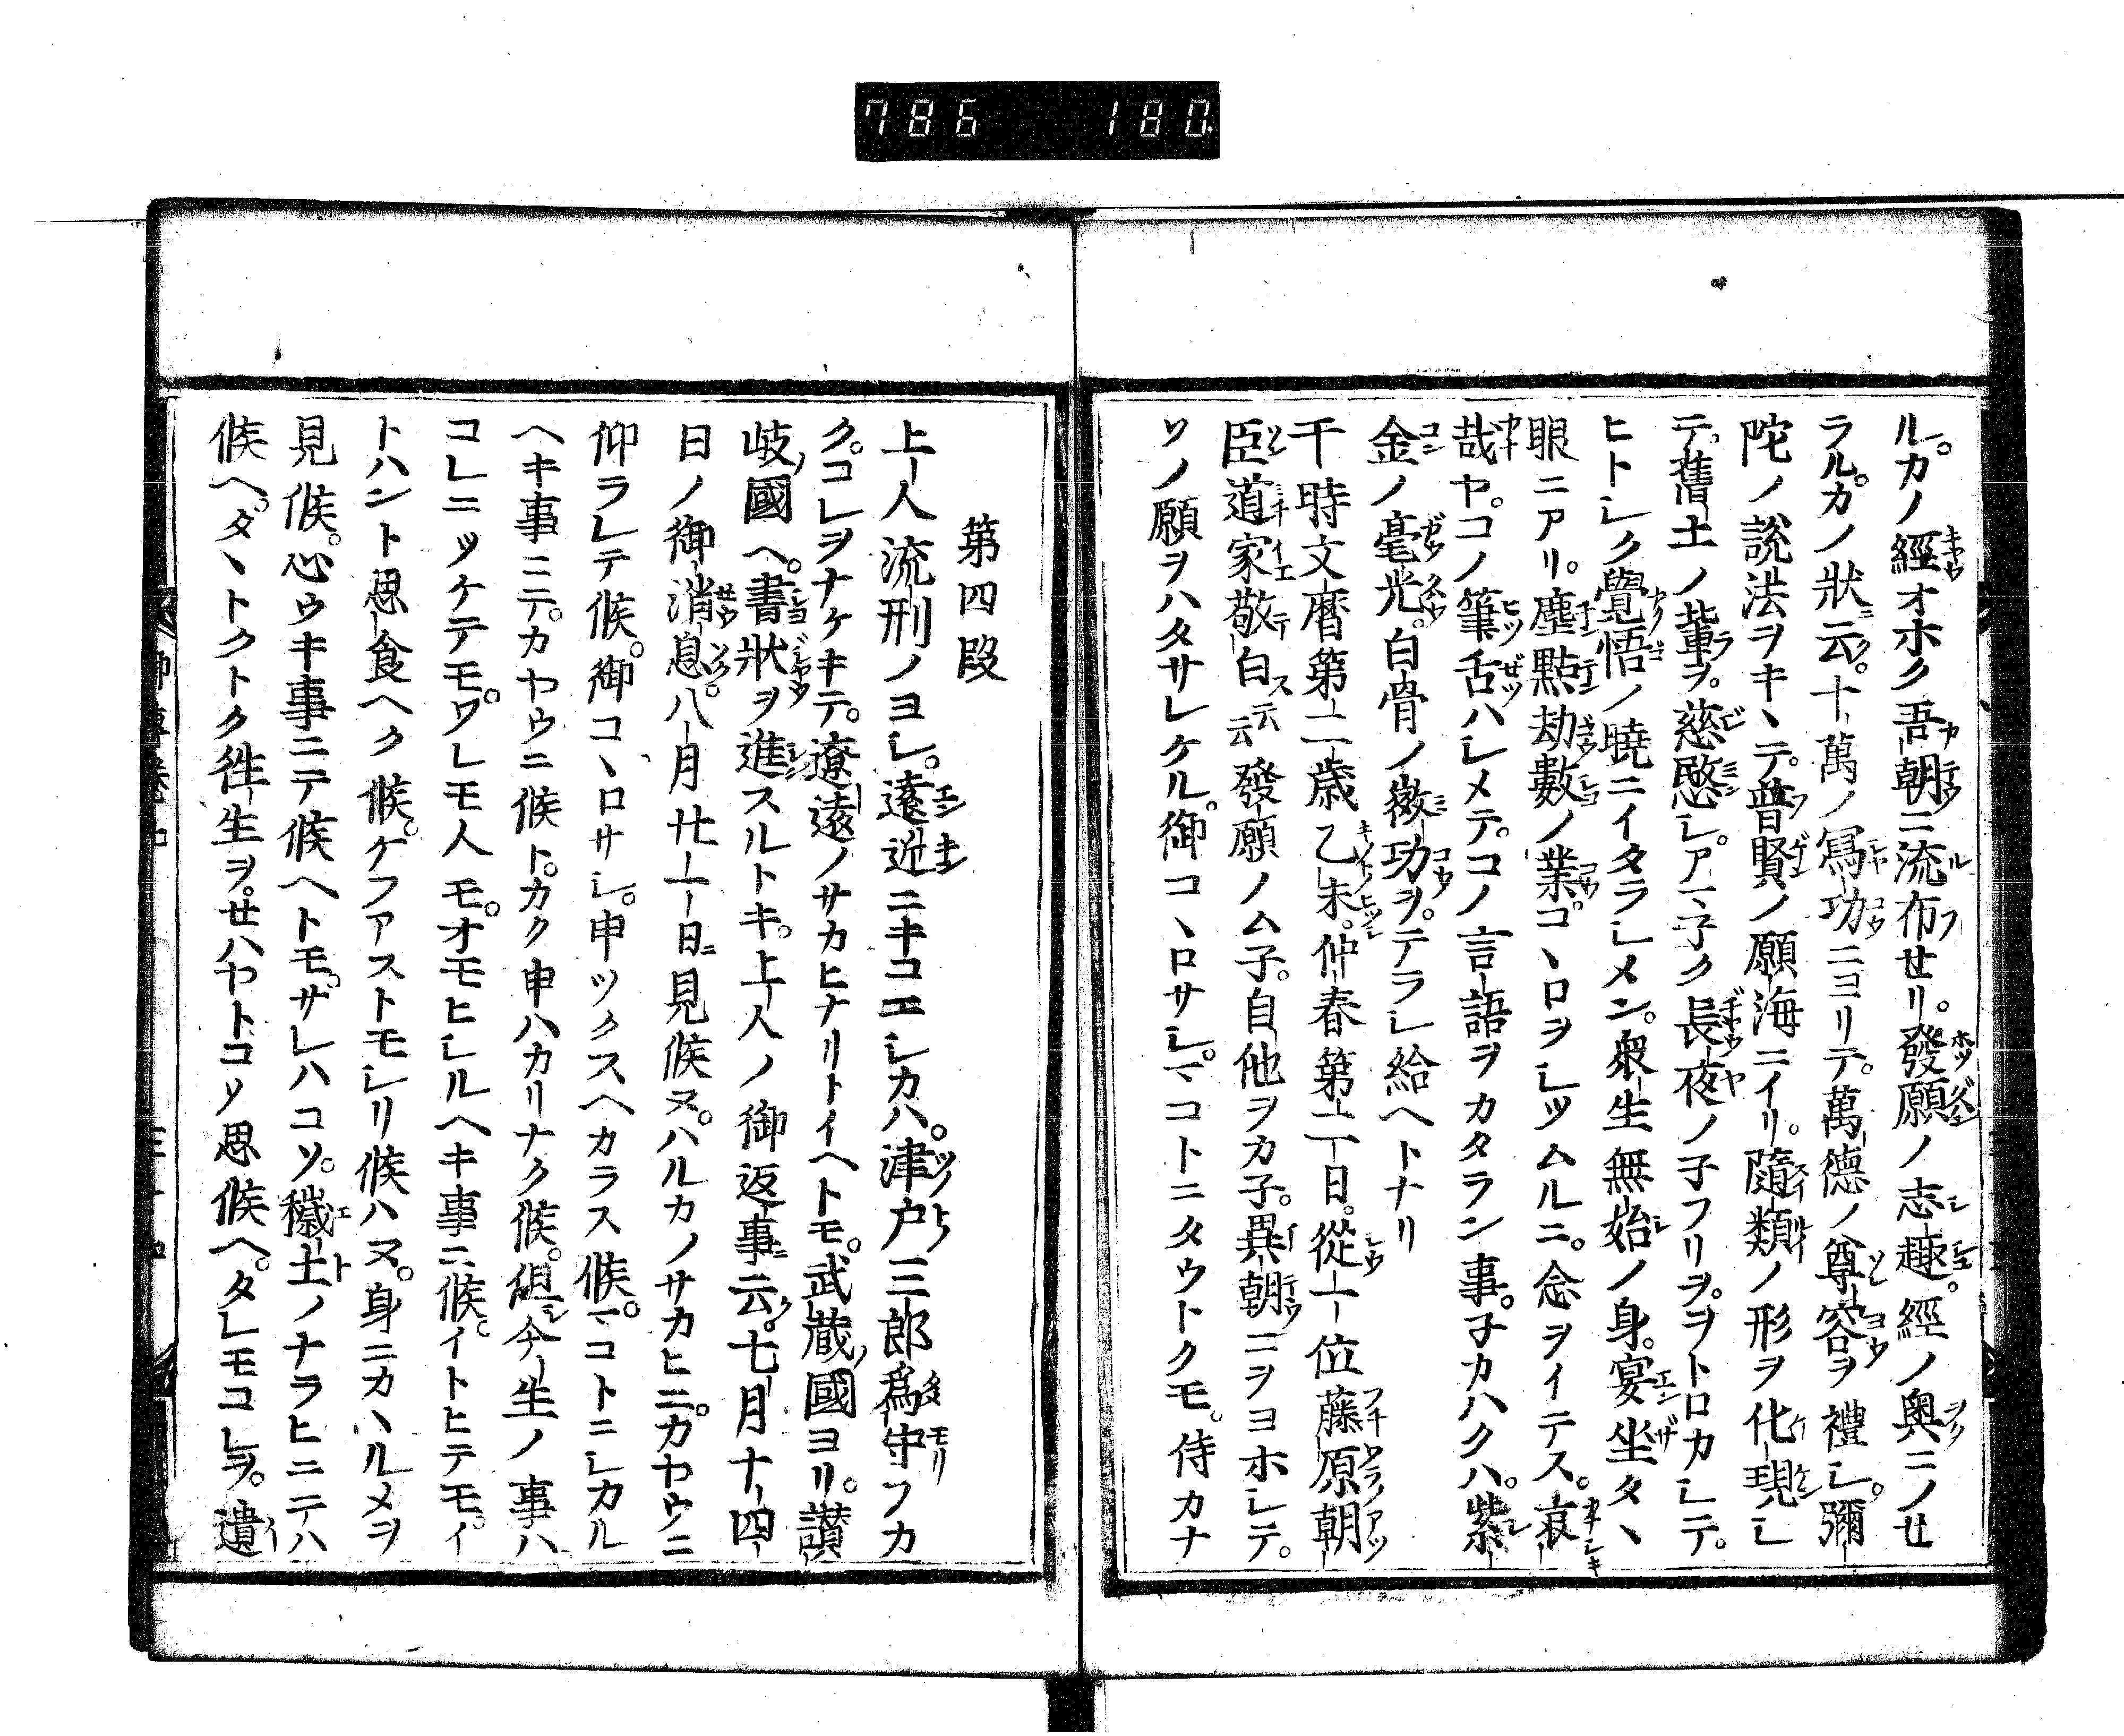 786 180
ル。カノ經オホク吾朝ニ流布せリ。發願ノ志趣。經ノ奥ニノせ
ラル。カノ狀云。十萬ノ寫功ニヨリテ。萬德ノ尊容ヲ禮シ。彌
陀ノ說法ヲキヽテ。普賢ノ願海ニイリ。隨類ノ形ヲ化現シ
テ。舊土ノ輩ヲ。慈愍シ。アマネク長夜ノネフリヲ。ヲトロカシテ。
ヒトシク覺悟ノ曉ニイタラシメン。衆生無始ノ身。宴坐タヽ
眼ニアリ。塵點劫數ノ業。コヽロヲシツムルニ。念ヲイテス。哀
哉ヤ。コノ筆舌ハシメテ。コノ言語ヲカタラン事。ネカハクハ。紫
金ノ毫光。白骨ノ微功ヲ。テラシ給ヘトナリ
于時文曆第二歲乙未。仲春第二日。從一位藤原朝
臣道家敬白云云發願ノムネ。自他ヲカネ。異朝ニヲヨホシテ。
ソノ願ヲハタサレケル。御コヽロサシ。マコトニタウトクモ。侍カナ
第四段
上人流刑ノヨシ。遠近ニキコエシカハ。津戸三郎爲守フカ
ク。コレヲナケキテ。遼遠ノサカヒナリトイヘトモ。武藏國ヨリ。讃
岐國ヘ。書狀ヲ進スルトキ。上人ノ御返事云。七月十四
日ノ御消息。八月廿一日見候ヌ。ハルカノサカヒニ。カヤウニ
仰ラレテ候。御コヽロサシ。申ツクスヘカラス候。マコトニシカル
ヘキ事ニテ。カヤウニ候ト。カク申ハカリナク候。但今生ノ事ハ
コレニツケテモ。ワレモ人モ。オモヒシルヘキ事ニ候。イトヒテモ。イ
トハント思食ヘク候。ケフアストモシリ候ハヌ。身ニカヽルメヲ
見候。心ウキ事ニテ候ヘトモ。サレハコソ。穢土ノナラヒニテハ
候ヘ。タヽトクトク往生ヲ。せハヤトコソ思候ヘ。タレモコレヲ。遺